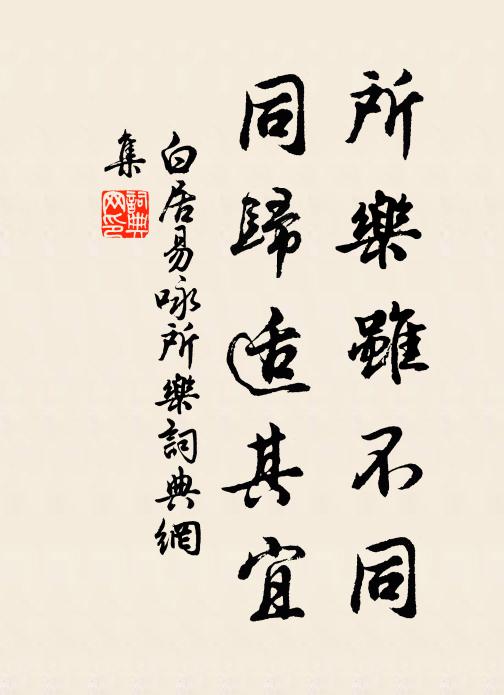 所樂雖不同
同歸适其宜
白居易咏所樂詞典網
集
詞典
网印